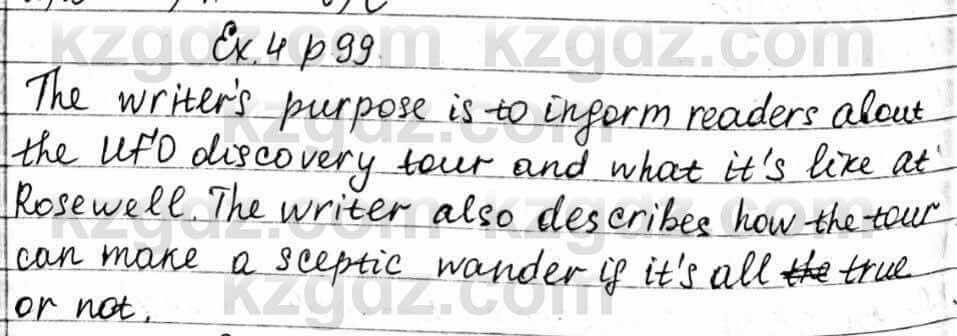 Ex. 4 p 99.
The writer's purpose is to inform readers about
the UFO discovery tour and what it's like at
Rosewell. The writer also describes how the tour
can make a sceptic wander if it's all the true
or not.
kzgdz.com kzgdz.com
kzgdz.com kzgdz.com